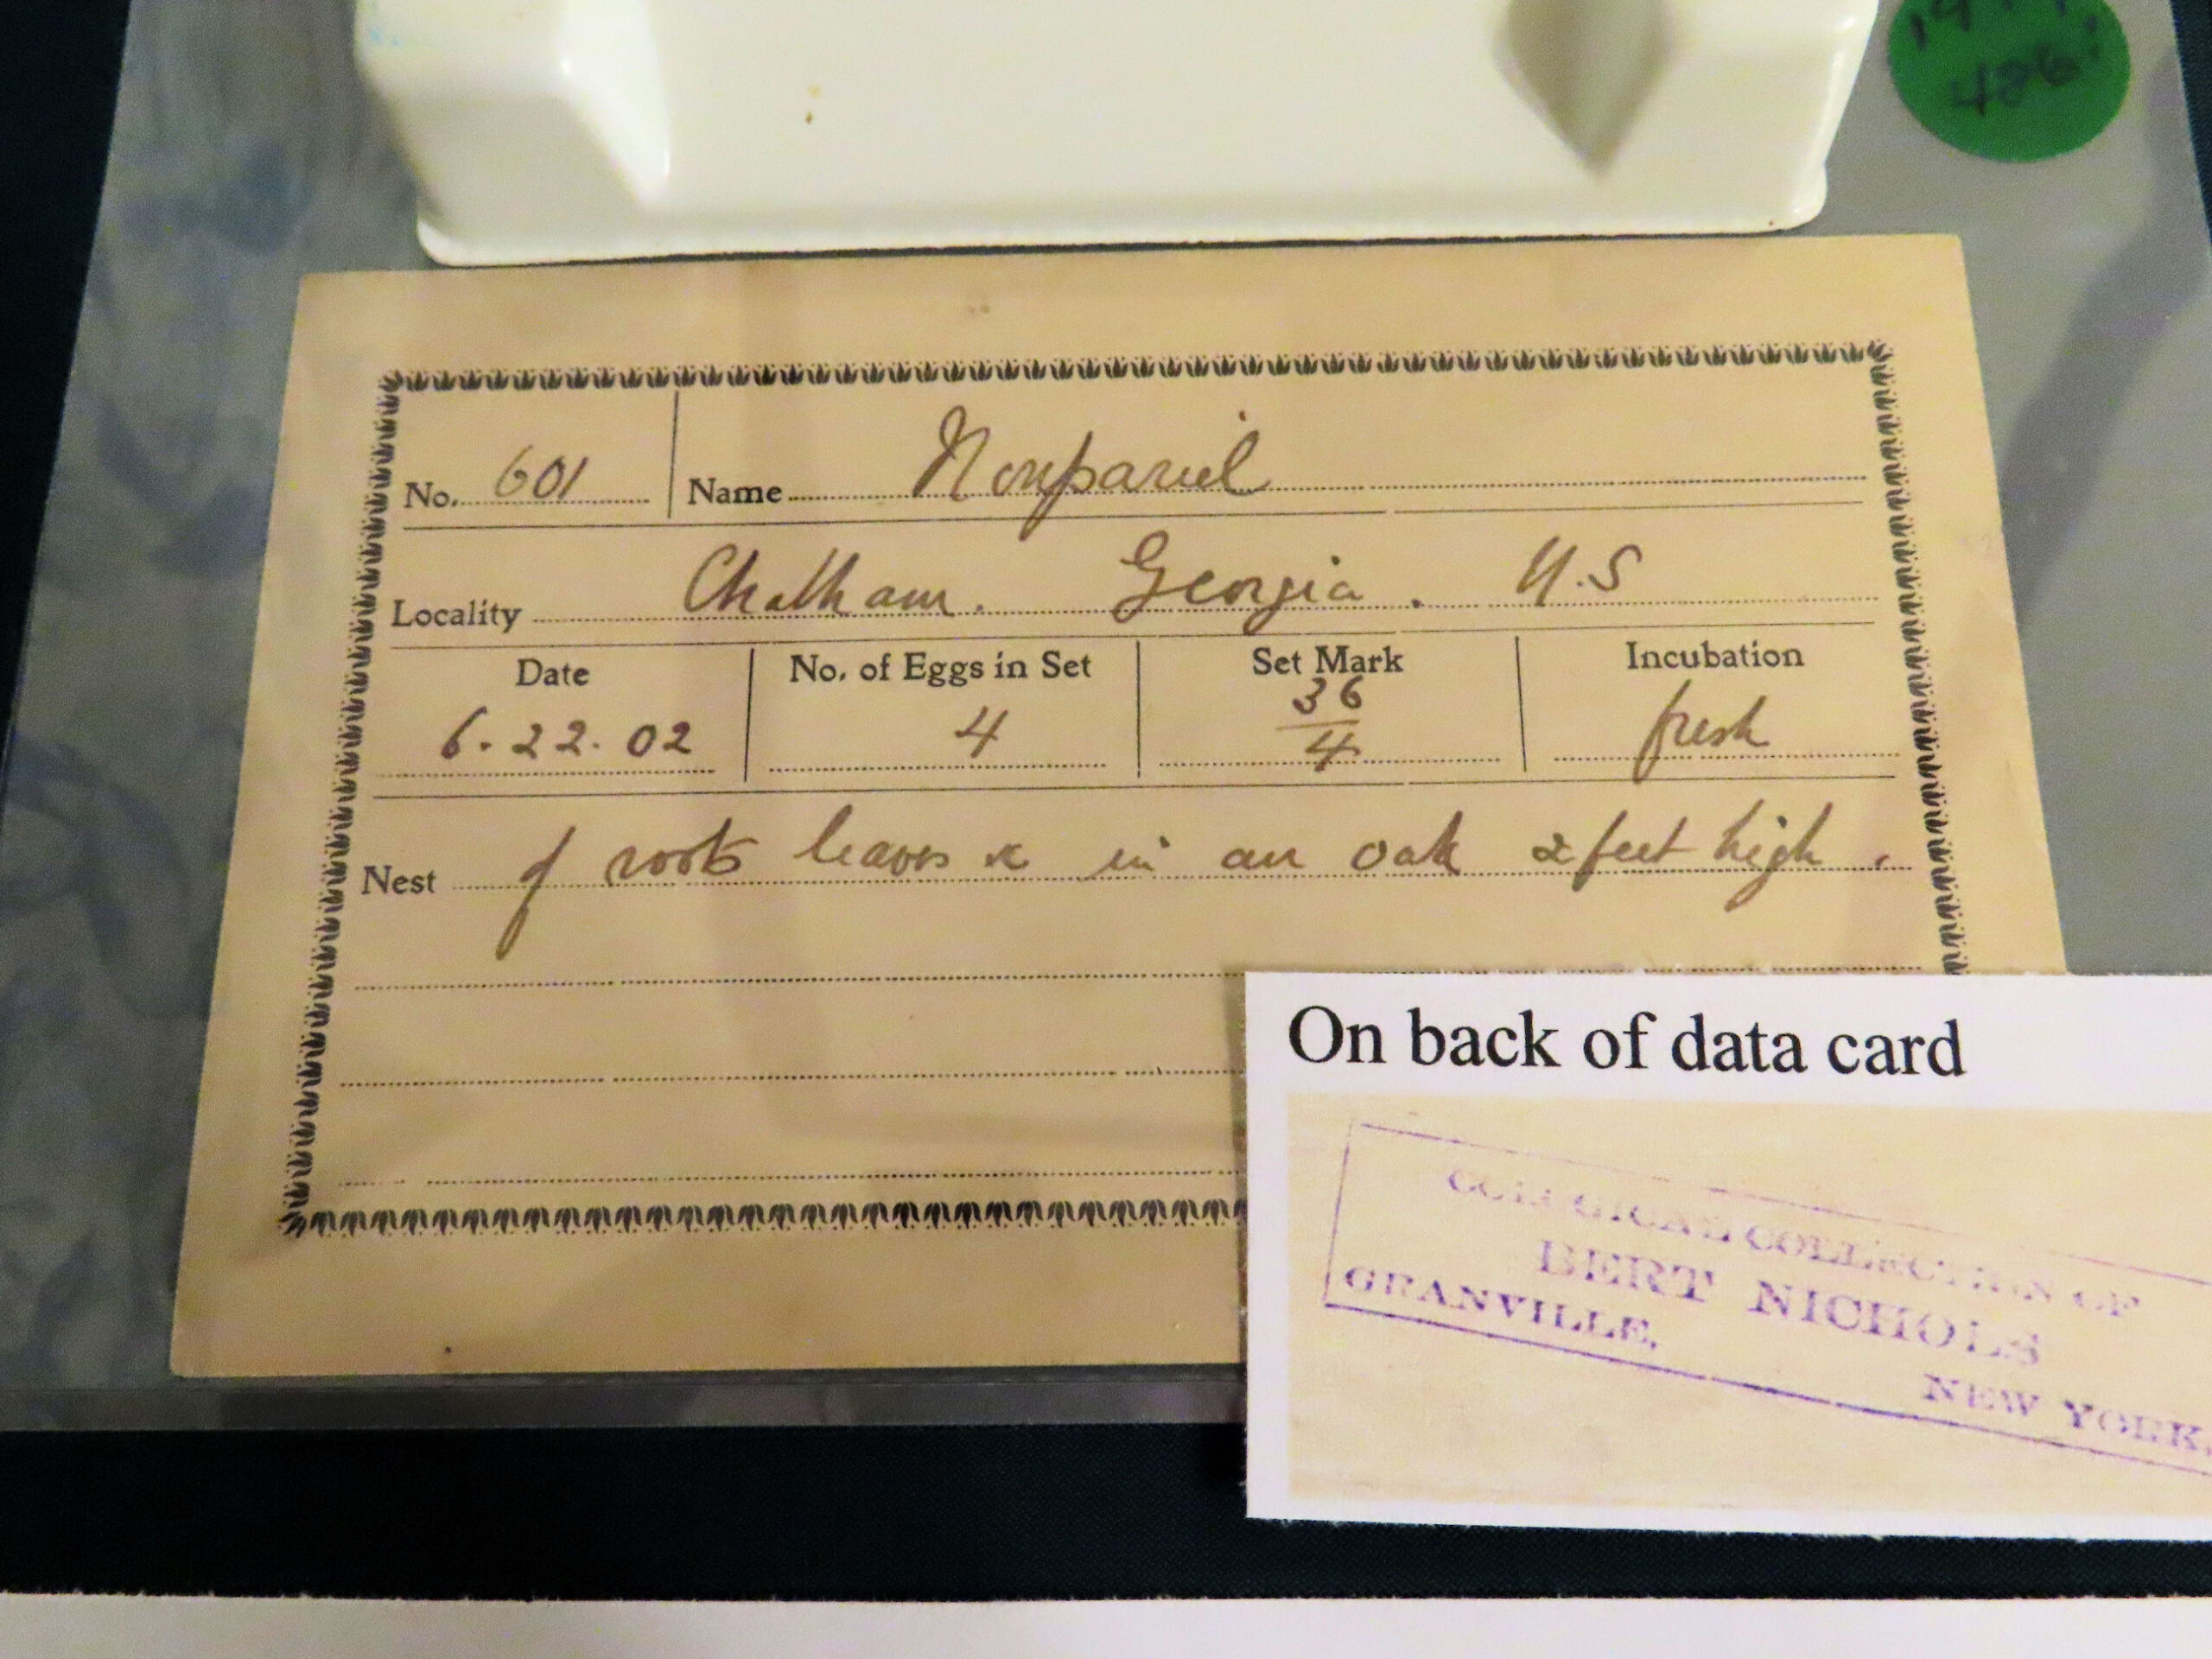 486
No. 601 Name Nonpariel
Locality Chatham. Georgia. U.S
Date No. of Eggs in Set Set Mark Incubation
6.22.02 4 36/4 fresh
Nest of roots leaves & in an oak 2 feet high.
On back of data card
OOLOGICAL COLLECTION OF
BERT NICHOLS
GRANVILLE, NEW YORK.